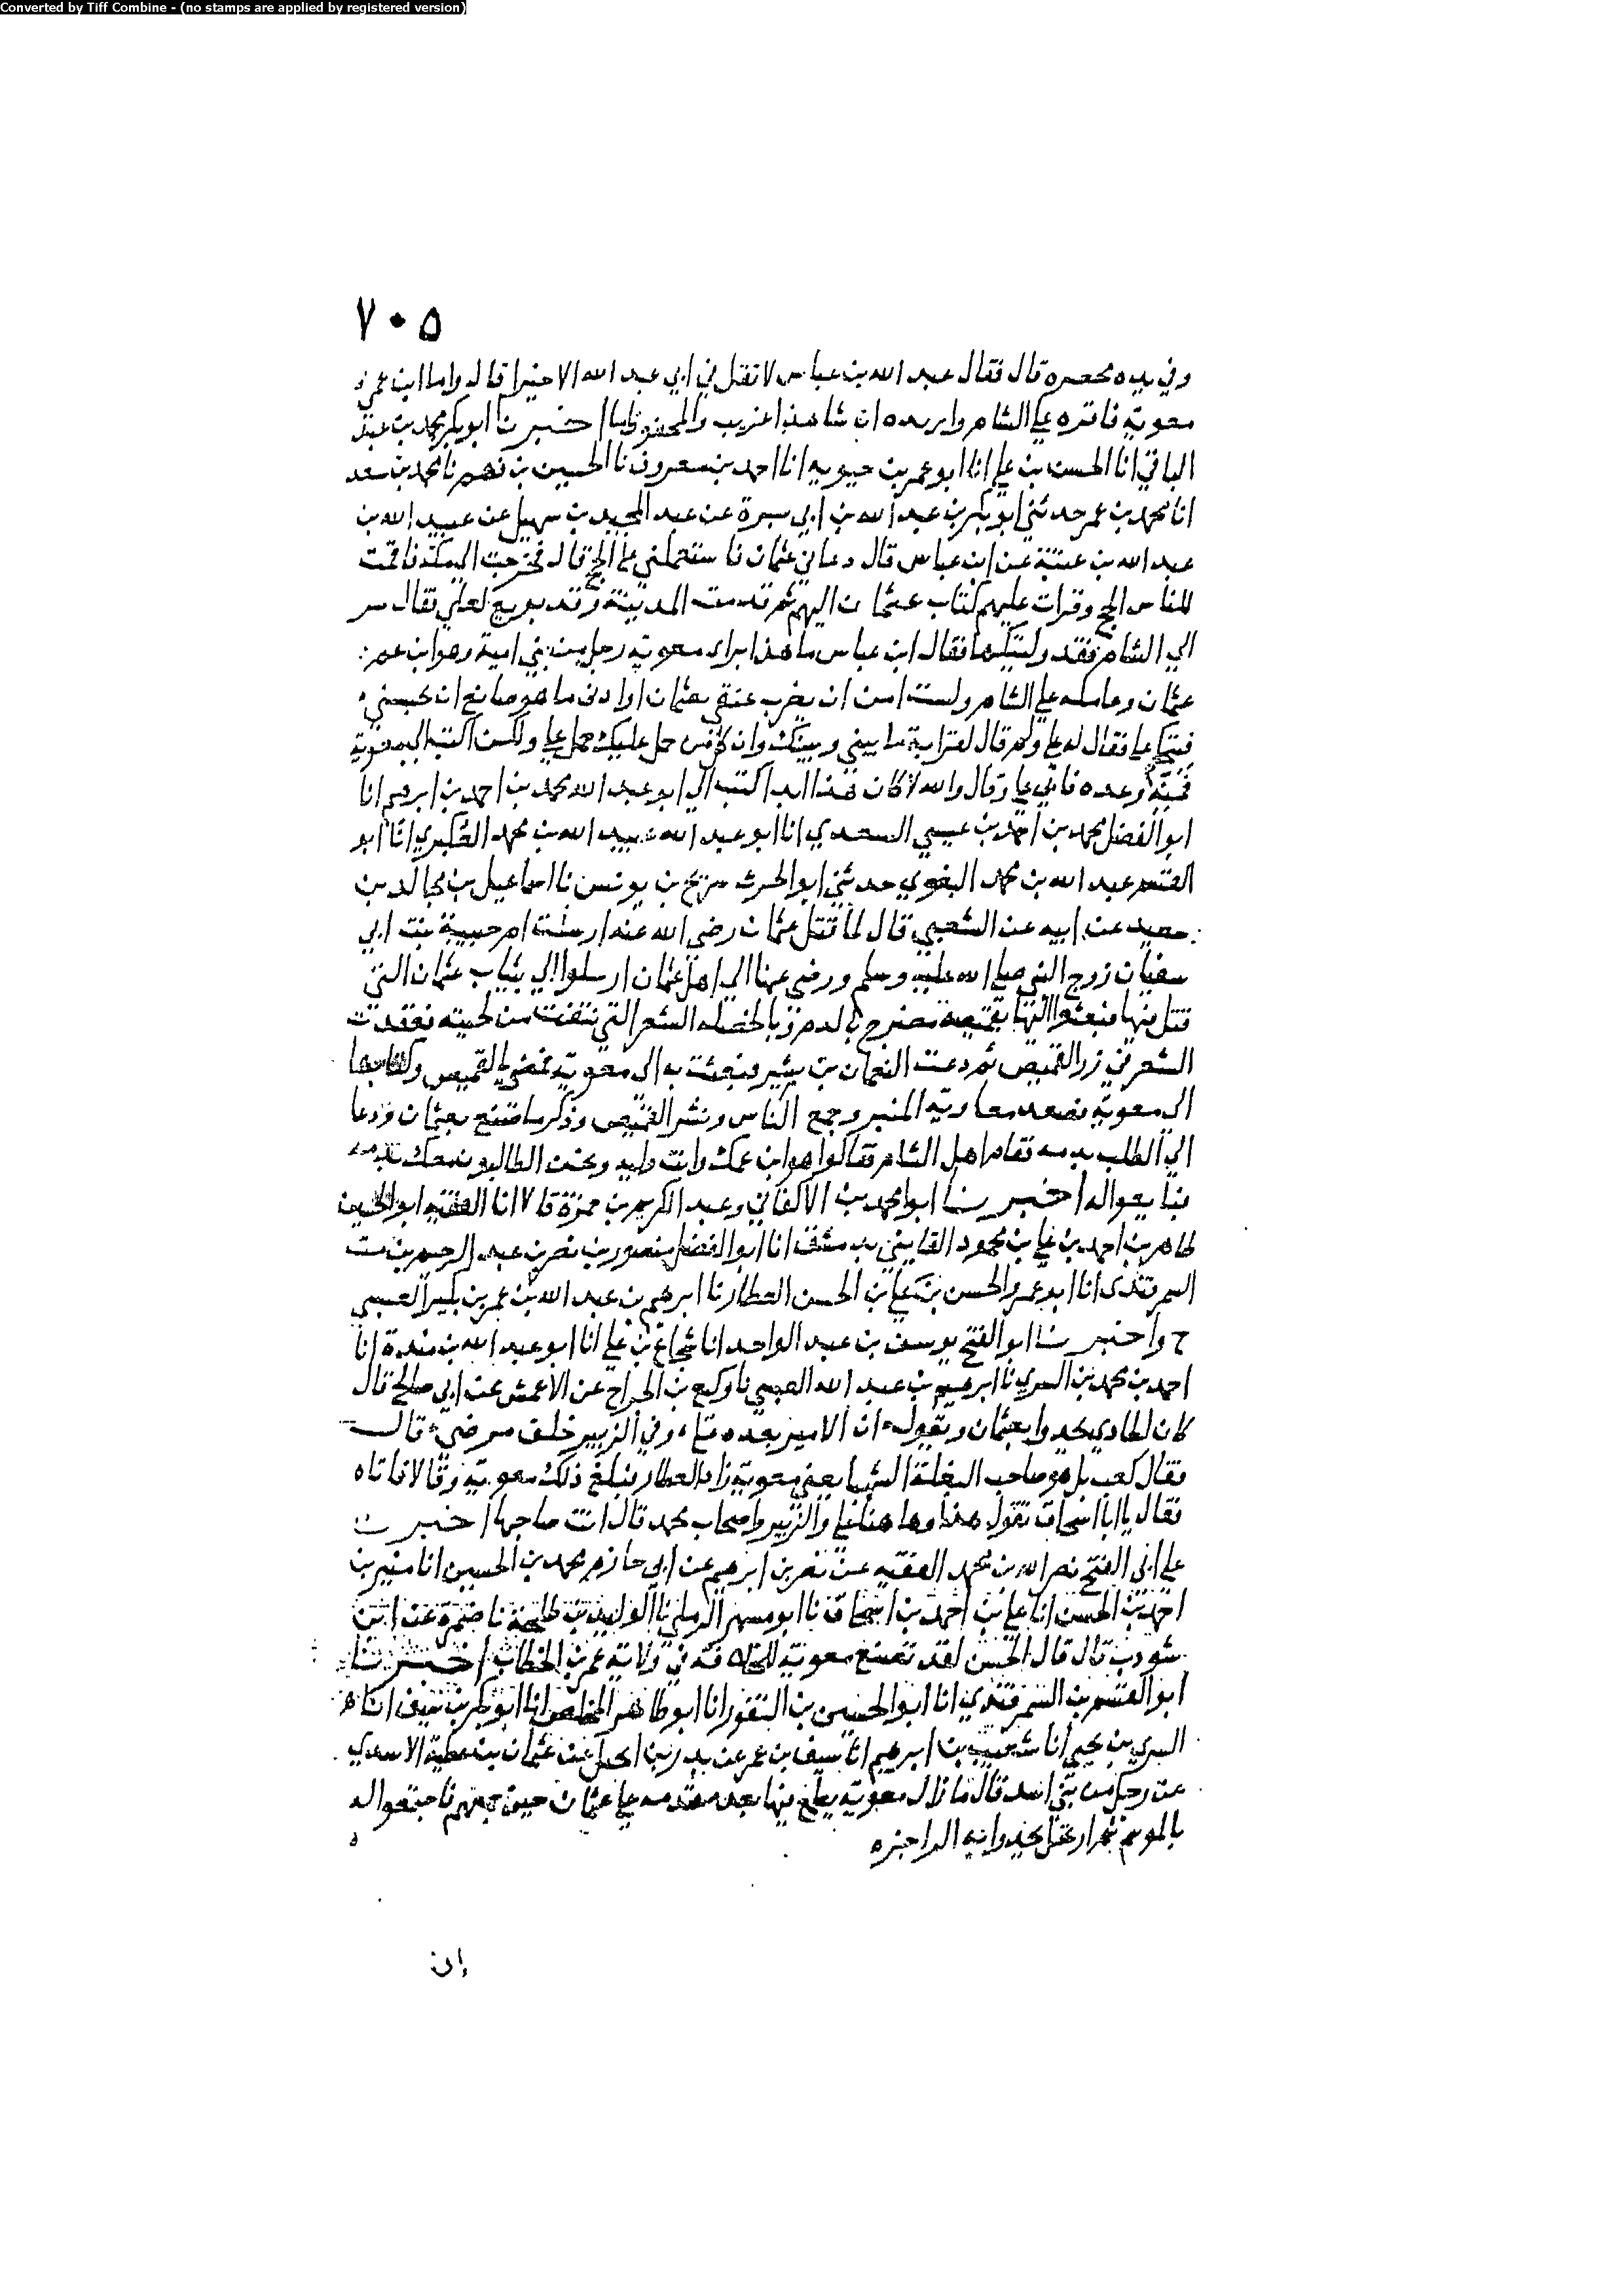 Converted by Tiff Combine - (no stamps are applied by registered version)
٧٠٥
وفي يده محصره قال فقال عبد الله بن عباس لا تقل في ابي عبد الله الا خيرا قال واما ابن عمي
معوية فاقره على الشام وامر بعده ان شا هذا غريب والمحفوظ ما اخبرنا ابو بكر محمد بن عبد
الباقي انا الحسن بن علي انا ابو عمر بن حيويه انا احمد بن معروف نا الحسين بن فهم نا محمد بن سعد
انا محمد بن عمر حدثني ابو بكر بن عبد الله بن ابي سبرة عن عبد المجيد بن سهيل عن عبيد الله بن
عبد الله بن عتبة عن ابن عباس قال دعاني عثمان فاستعملني على الحج قال فخرجت الى مكة فاقمت
للناس الحج وقرات عليهم كتاب عثمان اليهم ثم قدمت المدينة وقد بويع لعلي فقال سر
الي الشام فقد وليتكها فقال ابن عباس ما هذا براي معوية رجل من بني امية وهو ابن عم
عثمان وعامله علي الشام ولست امن ان يضرب عنقي بعثمان او ادنى ما هو صانع ان يحبسني
فيتحكم علي فقال له علي ولم قال لقرابة ما بيني وبينك وان كل من حمل عليك حمل علي ولكن اكتب الى معوية
فمنه وعده فابي علي وقال والله لا كان هذا ابدا كتب الي ابو عبد الله محمد بن احمد بن ابرهيم انا
ابو الفضل محمد بن احمد بن عيسى السعدي انا ابو عبد الله عبيد الله بن محمد العكبري انا ابو
القسم عبد الله بن محمد البغوي حدثني ابو الحرث سريج بن يونس نا اسماعيل بن مجالد بن
سعيد عن ابيه عن الشعبي قال لما قتل عثمان رضي الله عنه ارسلت ام حبيبة بنت ابي
سفيان زوج النبي صلى الله عليه وسلم ورضي عنها الى اهل عثمان ارسلوا الي بثياب عثمان التي
قتل فيها فبعثوا اليها بقميصه مضرج بالدم وبالخصلة الشعر التي نتفت من لحيته فعقدت
الشعر في زر القميص ثم دعت النعمان بن بشير فبعثت به الى معوية فمضى بالقميص وكتابها
الى معوية فصعد معاوية المنبر وجمع الناس ونشر القميص وذكر ما صنع بعثمان ودعا
الي الطلب بدمه فقام اهل الشام فقالوا هو ابن عمك وانت وليه ونحن الطالبون معك بدمه
فبايعوا له اخبرنا ابو محمد بن الاكفاني وعبد الكريم بن حمزة قالا انا الفقيه ابو الحسين
طاهر بن احمد بن علي بن محمود القايني بدمشق انا ابو الفضل منصور بن نصر بن عبد الرحيم بن مت
السمرقندي انا ابو عمرو الحسن بن علي بن الحسن العطار نا ابرهيم بن عبد الله بن عمر بن بكير العبسي
ح واخبرنا ابو الفتح يوسف بن عبد الواحد انا شجاع بن علي انا ابو عبد الله بن مندة انا
احمد بن محمد بن السري نا ابرهيم بن عبد الله العبسي نا وكيع بن الجراح عن الاعمش عن ابي صالح قال
كان الحادي يحدوا بعثمان ويقول ان الامير بعده علي وفي الزبير خلف مرضي قال
فقال كعب بل هو صاحب البغلة الشهبا يعني معوية زاد العطار فبلغ ذلك معوية وقالا فاتاه
فقال يا ابا اسحاق تقول هذا وها هنا علي والزبير واصحاب محمد قال انت صاحبها اخبرنا
علي ابي الفتح نصر الله بن محمد الفقيه عن نصر بن ابرهيم عن ابي حازم محمد بن الحسين انا منير بن
احمد بن الحسن انا علي بن احمد بن اسحاق نا ابو مسهر الرملي نا الوليد بن طلحة نا ضمرة عن ابن
شوذب قال قال الحسن لقد تصنع معوية للخلافة في ولاية عمر بن الخطاب اخبرنا
ابو القسم بن السمرقندي انا ابو الحسين بن النقور انا ابو طاهر المخلص انا ابو بكر بن سيف انا
السري بن يحيى انا شعيب بن ابرهيم انا سيف بن عمر عن بدر بن الخليل عن عثمان بن عطية الاسدي
عن رجل من بني اسد قال ما زال معوية يطمع فيها بعد مقدمه على عثمان حين جمعهم فاجتمعوا له
بالموسم ثم ارتحل يحدوا به الراجز
إن